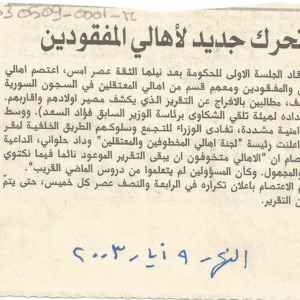 تحرك جديد لأهالي المفقودين
قاد الجلسة الاولى للحكومة بعد نيلها الثقة عصر امس، اعتصم اهالي
والمفقودين ومعهم قسم من اهالي المعتقلين في السجون السورية
ف، مطالبين بالافراج عن التقرير الذي يكشف مصير اولادهم واقاربهم.
داده لهيئة تلقي الشكاوى برئاسة الوزير السابق فؤاد السعد). ووسط
امنية مشددة، تفادى الوزراء التجمع وسلوكهم الطريق الخلفية لمقر
اعلنت رئيسة "لجنة اهالي المخطوفين والمعتقلين" وداد حلواني، الداعية
صام ان "الاهالي متخوفون ان يبقى التقرير الموعود نائما فيما نكتوي
والمجهول. وكأن المسؤولين لم يتعلموا من دروس الماضي القريب".
الاعتصام باعلان تكراره في الرابعة والنصف عصر كل خميس، حتى يتم
ن التقرير.
النهار ٩ أيار ٢٠٠٣